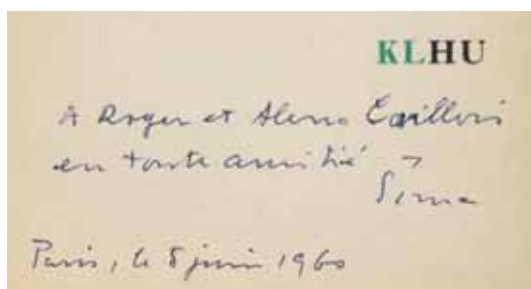 KLHU
A Roger et Alena Caillois
en toute amitié
Šíma
Paris, le 8 juin 1960